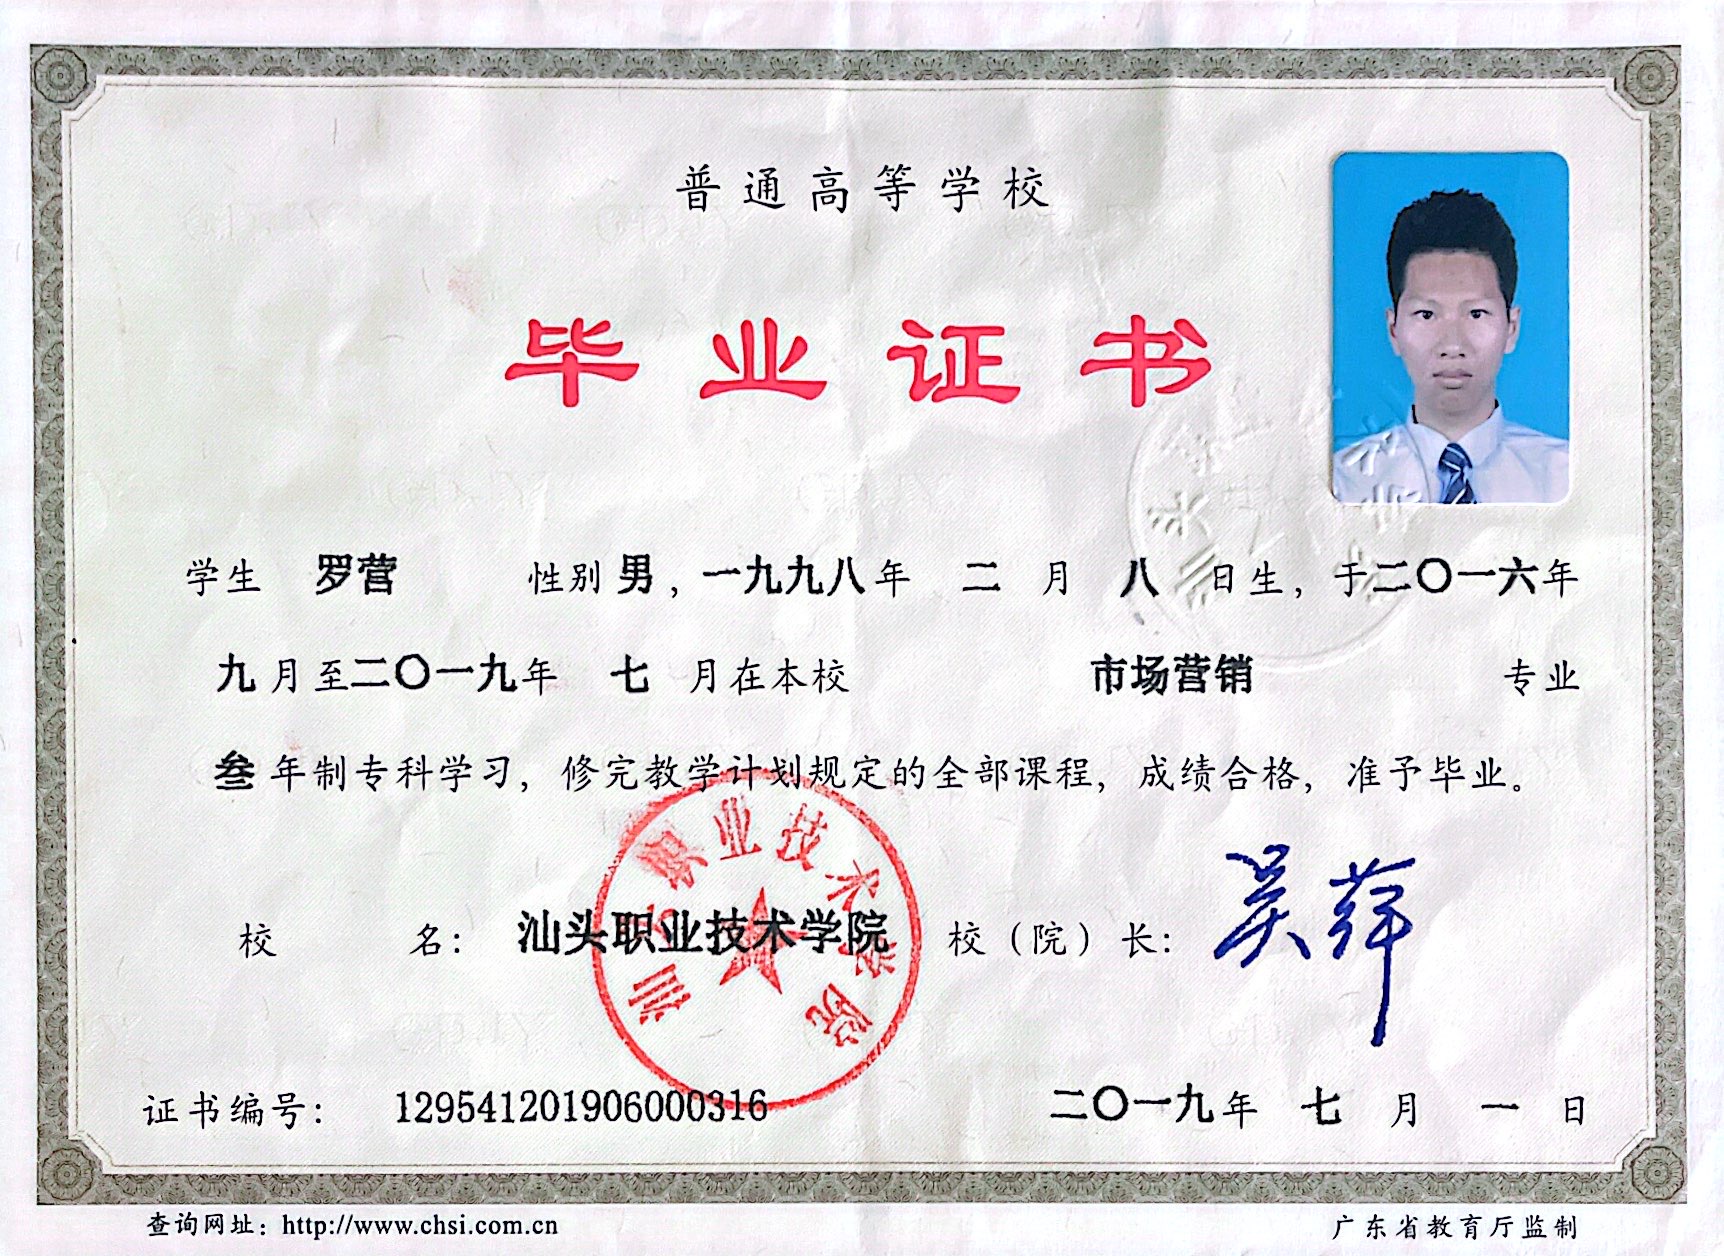 普通高等学校
毕业证书
学生 罗营 性别 男，一九九八年 二 月 八 日生，于二〇一六年
九月至二〇一九年 七 月在本校 市场营销 专业
叁 年制专科学习，修完教学计划规定的全部课程，成绩合格，准予毕业。
校 名：汕头职业技术学院 校（院）长：吴萍
汕头职业技术学院
证书编号：129541201906000316 二〇一九年 七 月 一 日
查询网址：http://www.chsi.com.cn 广东省教育厅监制